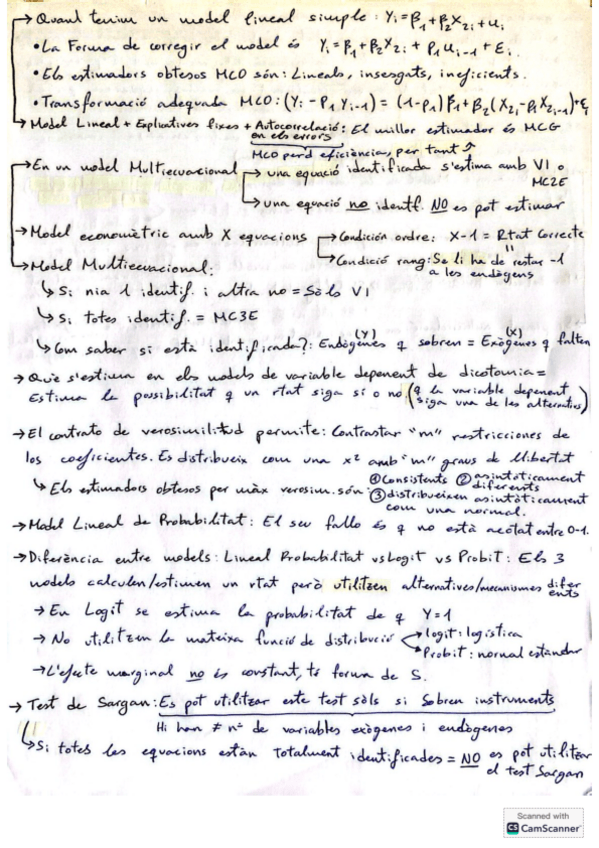 → Quant tenim un model lineal simple: Yi = β1 + β2X2i + ui
• La Forma de corregir el model és Yi = β1 + β2X2i + ρ1 ui-1 + Ei.
• Els estimadors obtesos MCO són: Lineals, insesgats, ineficients.
• Transformació adequada MCO: (Yi - ρ1 Yi-1) = (1-ρ1) β1 + β2 (X2i - ρ1 X2i-1) + Ei
→ Model Lineal + Explicatives fixes + Autocorrelació: El millor estimador és MCG
en els errors
MCO perd eficiències, per tant ↗
→ En un model Multiecuacional → una equació identificada s'estima amb VI o
MC2E
→ una equació no identf. NO es pot estimar
→ Model economètric amb X equacions → Condición ordre: X-1 = Rtat Correcte
"
→ Condición rang: Se li ha de restar -1
a les endògens
→ Model Multiecuacional:
↳ Si nia 1 identif. i altra no = Sòls VI
↳ Si totes identif. = MC3E
↳ Com saber si està identificada?: Endògenes (Y) q sobren = Exògenes (X) q falten
→ Què s'estima en els models de variable depenent de dicotomia =
Estima la possibilitat q un rtat siga si o no. (q la variable depenent
siga una de les alternatives)
→ El contrato de verosimilitud permite: Contrastar "m" restricciones de
los coeficientes. Es distribueix com una x² amb "m" graus de llibertat
↳ Els estimadors obtesos per màx verosim. són: ① Consistents ② asintòticament
diferents
③ distribueixen asintòticament
com una normal.
→ Model Lineal de Probabilitat: El seu fallo és q no està acotat entre 0-1.
→ Diferència entre models: Lineal Probabilitat vs Logit vs Probit: Els 3
models calculen/estimen un rtat però utilitzen alternatives/mecanismes difer
ents
→ En Logit se estima la probabilitat de q Y=1
→ No utilitzen la mateixa funció de distribució → logit: logística
→ Probit: normal estàndar
→ L'efecte marginal no és constant, té forma de S.
→ Test de Sargan: Es pot utilitzar este test sòls si Sobren instruments
Hi han ≠ nº de variables exògenes i endògenes
↳ Si totes les equacions estàn Totalment identificades = NO es pot utilitzar
el test Sargan
Scanned with
CS CamScanner